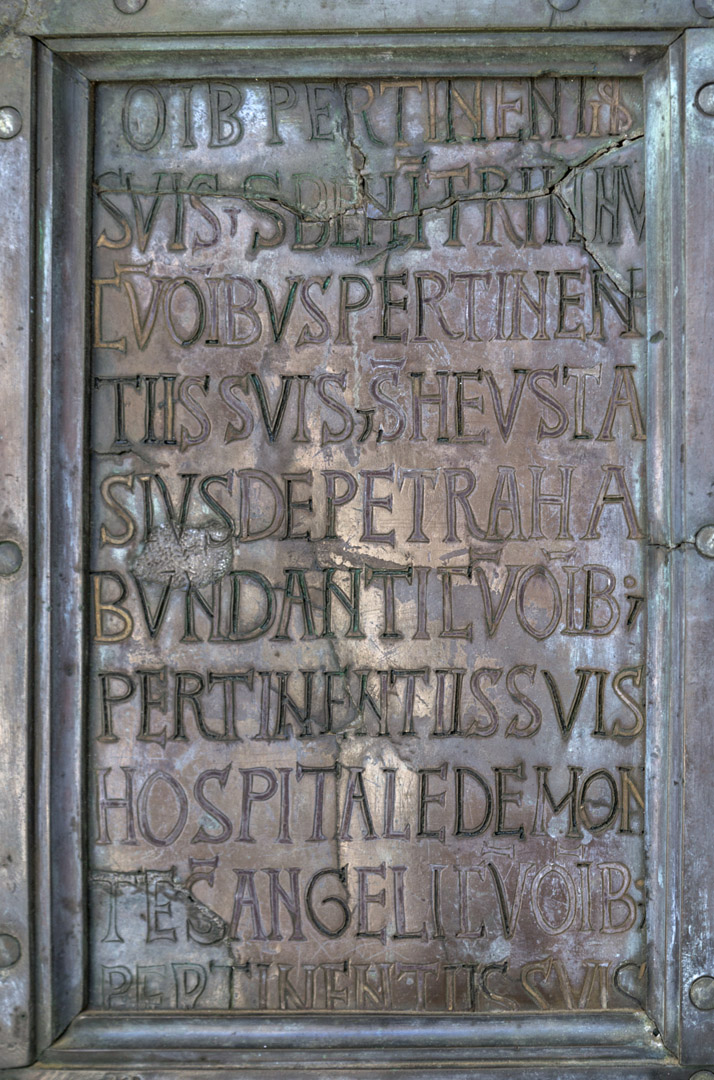 OIB PERTINENTIS
SVIS, S BENĒTRINHV
C̄V̄ OĪB VS PERTINEN
TIIS SVIS, S̄ HEVSTA
SIVS DE PETRA HA
BVNDANTI C̄V̄ OĪB;
PERTINENTIIS SVIS
HOSPITALE DE MON
TE S̄ ANGELI C̄V̄ OĪB;
PERTINENTIIS SVIS